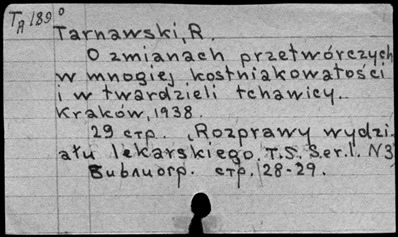 TA 189°
Tarnawski, R.
O zmianach przetwórczych
w mnogiej kostniakowatości
i w twardzieli tchawicy.
Kraków, 1938.
29 стр. (Rozprawy wydzi-
ału lekarskiego. T.S. Ser.I. N3)
Библиогр. стр. 28-29.